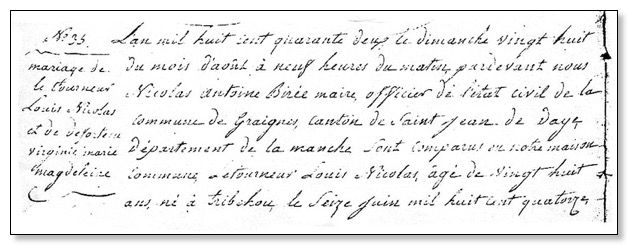 N° 35
mariage de
le tourneur
Louis Nicolas
et de
virginie marie
magdeleine
L'an mil huit cent quarante deux le dimanche vingt huit
du mois d'août à neuf heures du matin, pardevant nous
Nicolas Antoine Birée maire, officier de l'état civil de la
commune de Graignes, canton de Saint Jean de Daye,
département de la manche sont comparus en notre maison
commune, Letourneur Louis Nicolas, âgé de vingt huit
ans, né à tribehou, le Seize Juin mil huit cent quatorze,